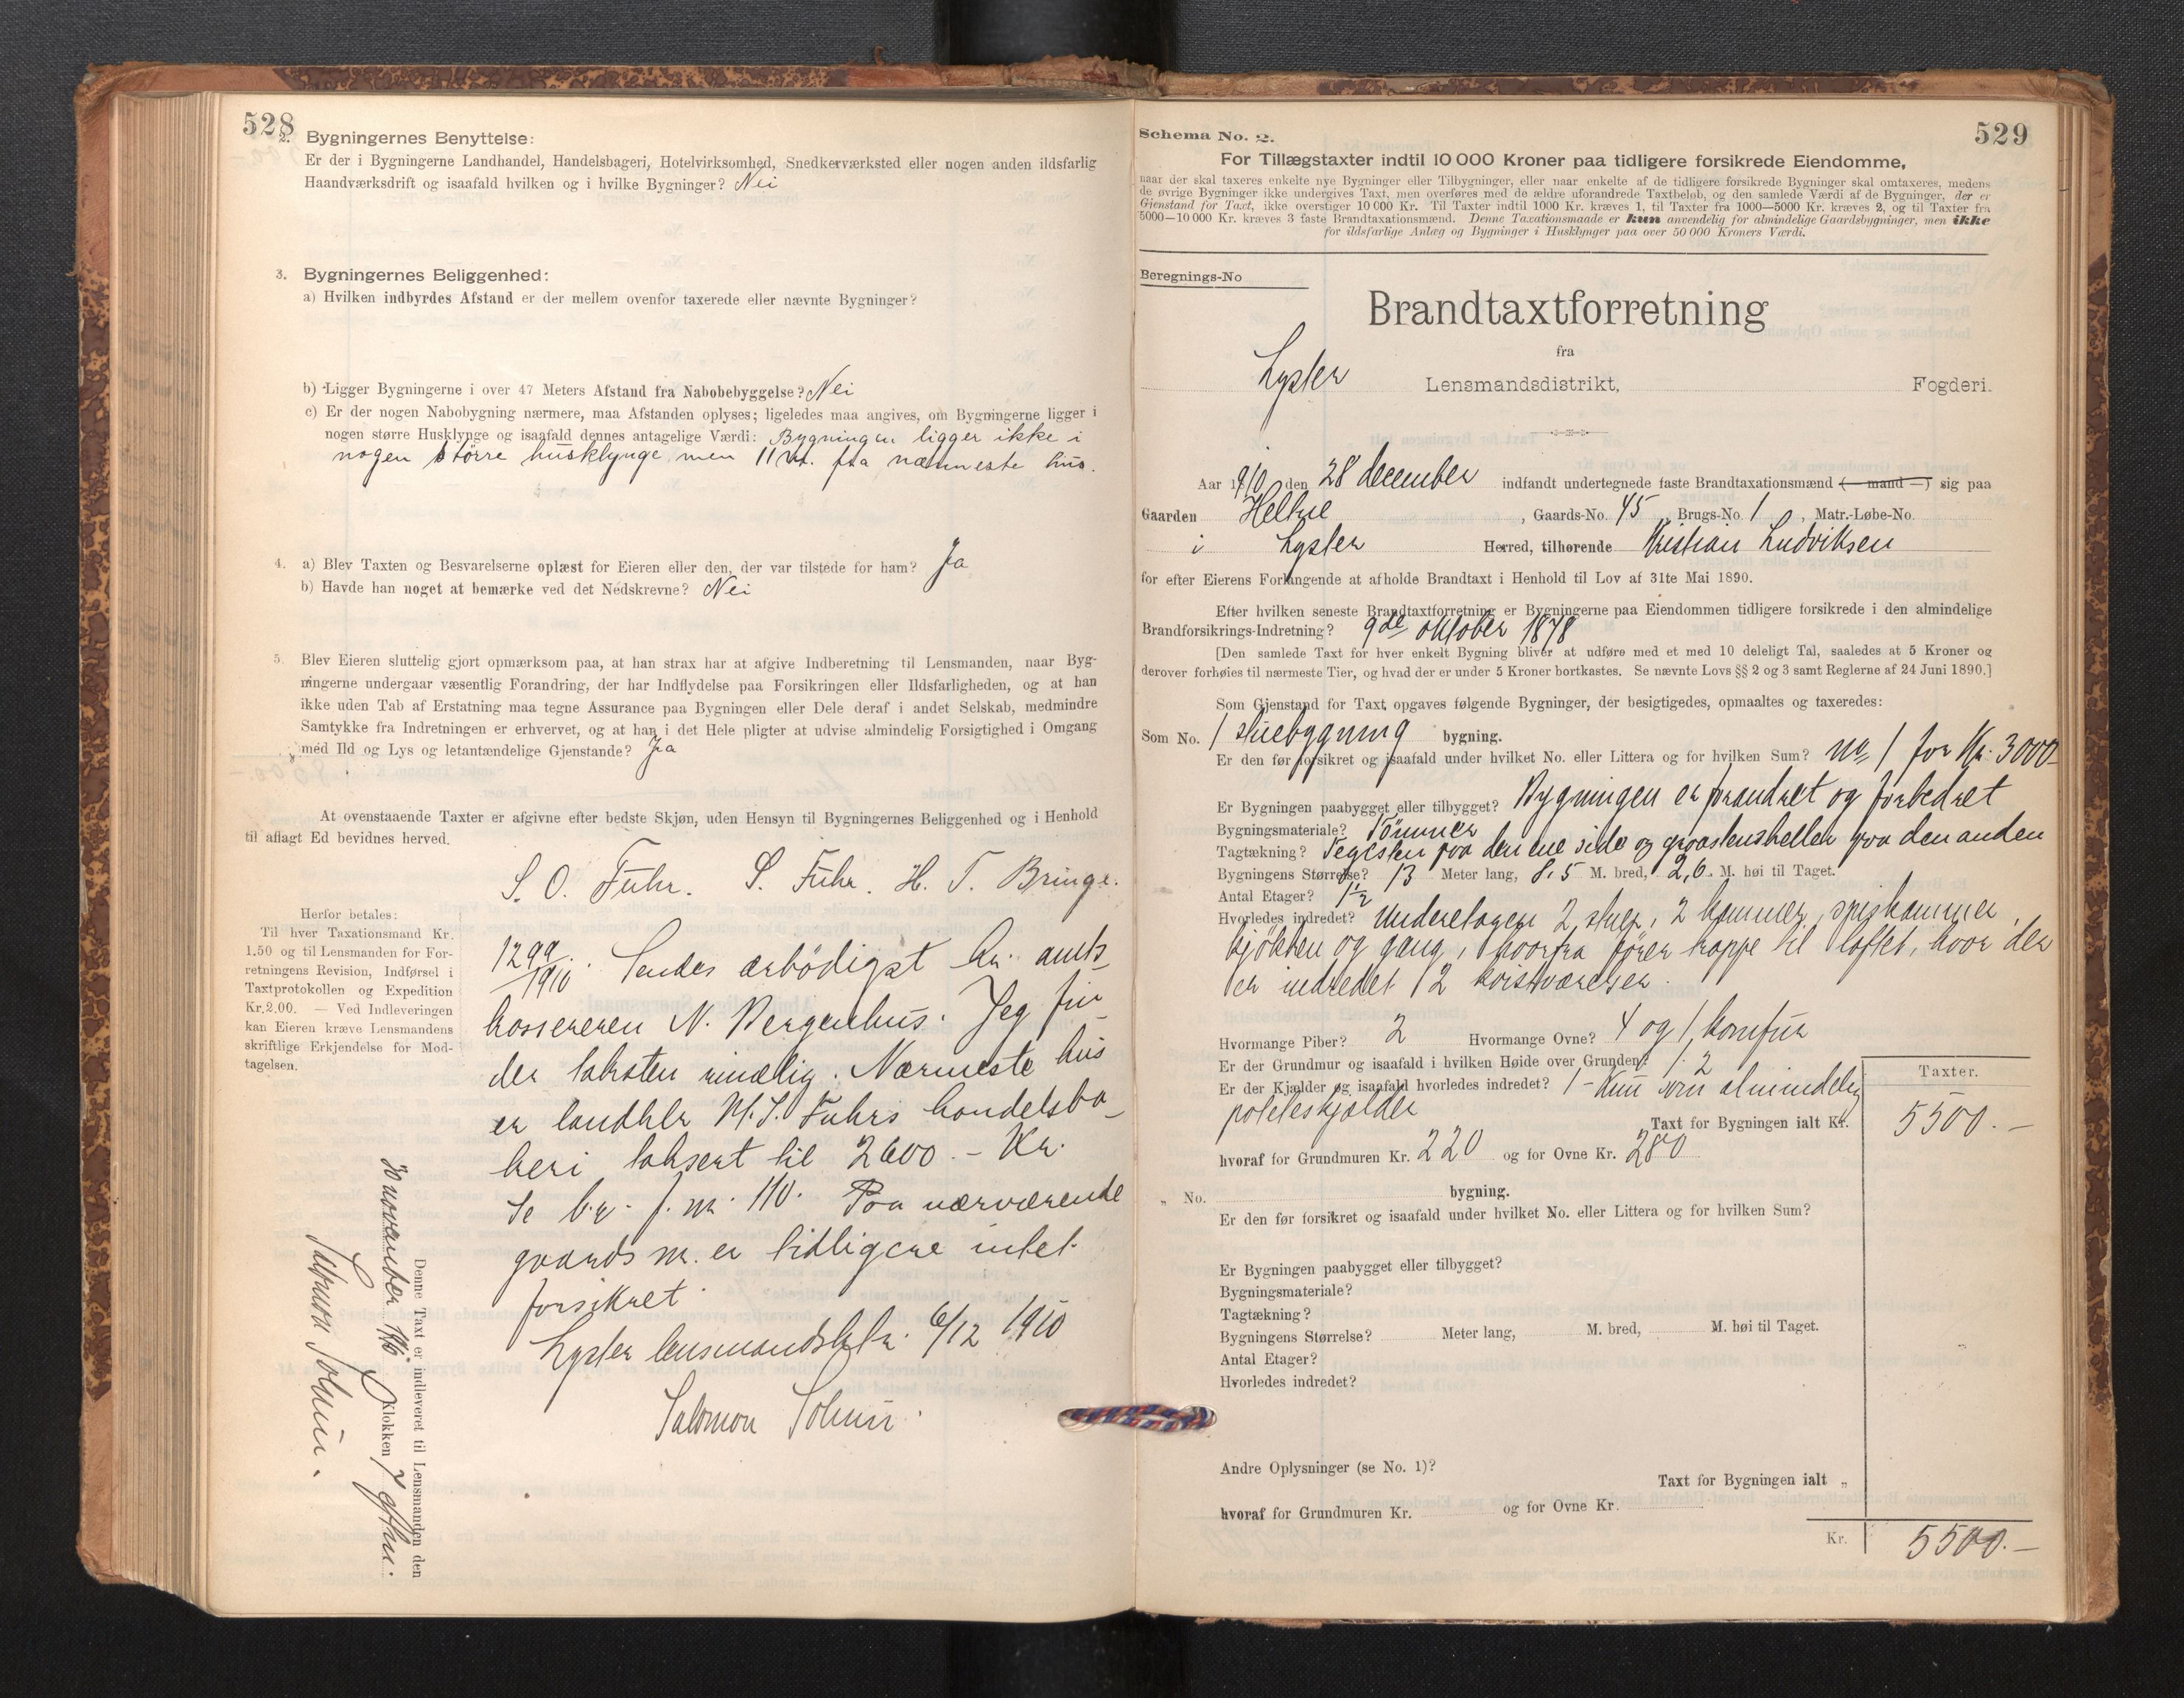 528
2. Bygningernes Benyttelse:
Er der i Bygningerne Landhandel, Handelsbageri, Hotelvirksomhed, Snedkerværksted eller nogen anden ildsfarlig
Haandværksdrift og isaafald hvilken og i hvilke Bygninger? Nei
3. Bygningernes Beliggenhed:
a) Hvilken indbyrdes Afstand er der mellem ovenfor taxerede eller nævnte Bygninger?
b) Ligger Bygningerne i over 47 Meters Afstand fra Nabobebyggelse? Nei
c) Er der nogen Nabobygning nærmere, maa Afstanden oplyses; ligeledes maa angives, om Bygningerne ligger i
nogen større Husklynge og isaafald dennes antagelige Værdi: Bygningen ligger ikke i
nogen större husklynge, men 11 m. fra nærmeste hus.
4. a) Blev Taxten og Besvarelserne oplæst for Eieren eller den, der var tilstede for ham? Ja
b) Havde han noget at bemærke ved det Nedskrevne? Nei
5. Blev Eieren sluttelig gjort opmærksom paa, at han strax har at afgive Indberetning til Lensmanden, naar Byg-
ningerne undergaar væsentlig Forandring, der har Indflydelse paa Forsikringen eller Ildsfarligheden, og at han
ikke uden Tab af Erstatning maa tegne Assurance paa Bygningen eller Dele deraf i andet Selskab, medmindre
Samtykke fra Indretningen er erhvervet, og at han i det Hele pligter at udvise almindelig Forsigtighed i Omgang
med Ild og Lys og letantændelige Gjenstande? Ja
At ovenstaaende Taxter er afgivne efter bedste Skjøn, uden Hensyn til Bygningernes Beliggenhed og i Henhold
til aflagt Ed bevidnes herved.
S. O. Fuhr. S. Fuhr. H. T. Bringe.
Herfor betales:
Til hver Taxationsmand Kr.
1.50 og til Lensmanden for For-
retningens Revision, Indførsel i
Taxtprotokollen og Expedition
Kr. 2.00. — Ved Indleveringen
kan Eieren kræve Lensmandens
skriftlige Erkjendelse for Mod-
tagelsen.
1299/1910. Sendes ærbödigst hr. amts-
kassereren N. Bergenhus. Jeg fin
der taksten rimelig. Nærmeste hus
er landhlr M. S. Fuhrs handelsba-
keri taksert til 2600.- Kr.
Se br. f. nr. 110. Paa nærværende
gaards nr. er tidligere intet
forsikret.
Lyster lensmandsktr. 6/12 1910
Salomon Solhein.
Denne Taxt er indleveret til Lensmanden den
30 november 1910. Klokken 7 efthm.
Salomon Solhein.
529
Schema No. 2.
For Tillægstaxter indtil 10 000 Kroner paa tidligere forsikrede Eiendomme,
naar der skal taxeres enkelte nye Bygninger eller Tilbygninger, eller naar enkelte af de tidligere forsikrede Bygninger skal omtaxeres, medens
de øvrige Bygninger ikke undergives Taxt, men overføres med de ældre uforandrede Taxtbeløb, og den samlede Værdi af de Bygninger, der er
Gjenstand for Taxt, ikke overstiger 10 000 Kr. Til Taxter indtil 1000 Kr. kræves 1, til Taxter fra 1000—5000 Kr. kræves 2, og til Taxter fra
5000—10 000 Kr. kræves 3 faste Brandtaxationsmænd. Denne Taxationsmaade er kun anvendelig for almindelige Gaardsbygninger, men ikke
for ildsfarlige Anlæg og Bygninger i Husklynger paa over 50 000 Kroners Værdi.
Beregnings-No
Brandtaxtforretning
fra
Lyster Lensmandsdistrikt, Fogderi.
Aar 1910 den 28 december indfandt undertegnede faste Brandtaxationsmænd ( — mand —) sig paa
Gaarden Heltne, Gaards-No. 45, Brugs-No. 1, Matr.-Løbe-No.
i Lyster Herred, tilhørende Kristian Ludviksen
for efter Eierens Forlangende at afholde Brandtaxt i Henhold til Lov af 31te Mai 1890.
Efter hvilken seneste Brandtaxtforretning er Bygningerne paa Eiendommen tidligere forsikrede i den almindelige
Brandforsikrings-Indretning? 9de oktober 1878
[Den samlede Taxt for hver enkelt Bygning bliver at udføre med et med 10 deleligt Tal, saaledes at 5 Kroner og
derover forhøies til nærmeste Tier, og hvad der er under 5 Kroner bortkastes. Se nævnte Lovs §§ 2 og 3 samt Reglerne af 24 Juni 1890.]
Som Gjenstand for Taxt opgaves følgende Bygninger, der besigtigedes, opmaaltes og taxeredes:
Som No. 1 stuebygning bygning.
Er den før forsikret og isaafald under hvilket No. eller Littera og for hvilken Sum? no 1 for Kr. 3000-
Er Bygningen paabygget eller tilbygget? Bygningen er forandret og forbedret
Bygningsmateriale? Tömmer
Tagtækning? Tegelsten paa den ene side og graastensheller paa den anden
Bygningens Størrelse? 13 Meter lang, 8,5 M. bred, 2,6 M. høi til Taget.
Antal Etager? 1 1/2
Hvorledes indredet? Underetagen 2 stuer, 2 kammer, spiskammer,
kjökken og gang, hvorfra fører trappe til loftet, hvor der
er indredet 2 kvistværelser.
Hvormange Piber? 2 Hvormange Ovne? 4 og 1 komfur
Er der Grundmur og isaafald i hvilken Høide over Grunden? 1.2
Er der Kjælder og isaafald hvorledes indredet? 1 - kun som almindelig
poteteskjælder
Taxter.
Taxt for Bygningen ialt Kr. 5500.-
hvoraf for Grundmuren Kr. 220 og for Ovne Kr. 280
„ No. bygning.
Er den før forsikret og isaafald under hvilket No. eller Littera og for hvilken Sum?
Er Bygningen paabygget eller tilbygget?
Bygningsmateriale?
Tagtækning?
Bygningens Størrelse? Meter lang, M. bred, M. høi til Taget.
Antal Etager?
Hvorledes indredet?
Andre Oplysninger (se No. 1)?
Taxt for Bygningen ialt „
hvoraf for Grundmuren Kr. og for Ovne Kr.
Kr. 5500.-